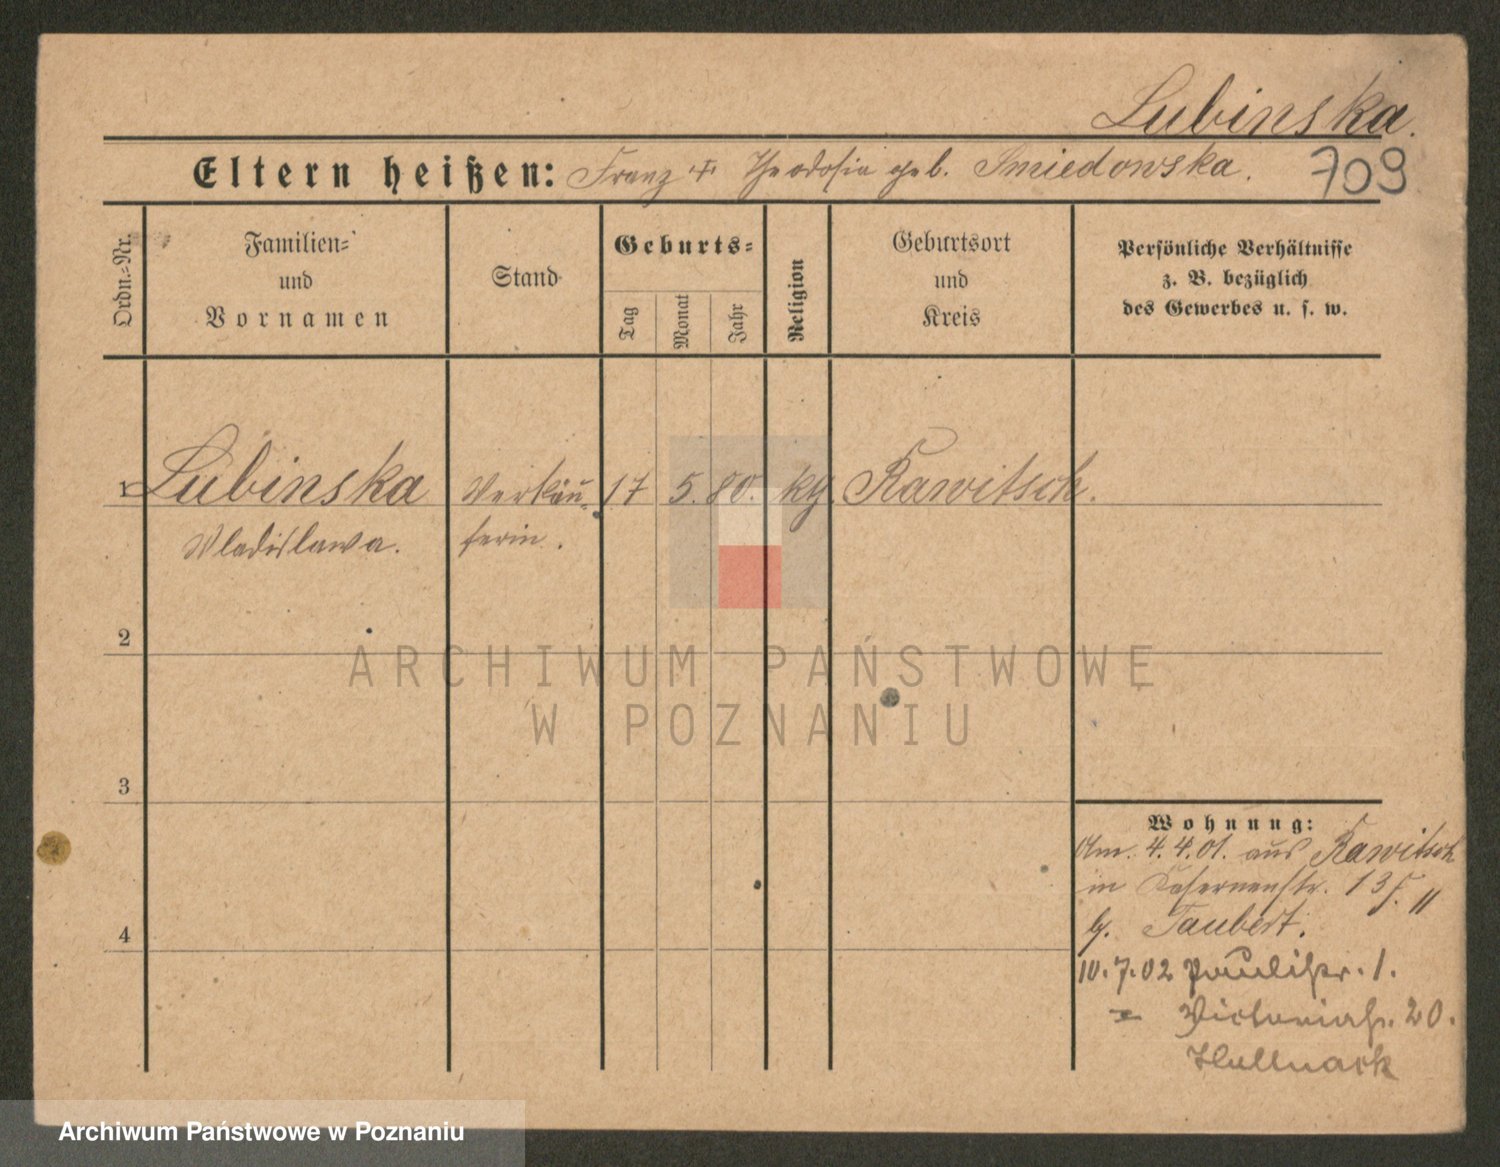 Lubinska.
Eltern heißen: Franz + Theodosia geb. Smiedowska.
709
Ordn.-Nr.
Familien-
und
Vornamen
Stand
Geburts-
Tag
Monat
Jahr
Religion
Geburtsort
und
Kreis
Persönliche Verhältnisse
z. B. bezüglich
des Gewerbes u. s. w.
1 Lubinska Verkäu- 17 5. 80. kg. Rawitsch.
Wladislawa. ferin.
2
ARCHIWUM PAŃSTWOWE
W POZNANIU
3
Wohnung:
Am. 4.4.01. aus Rawitsch
in Kasernenstr. 13 II
b. Taubert.
10.7.02 Paulistr. 1.
= Victoriastr. 20.
4
Archiwum Państwowe w Poznaniu